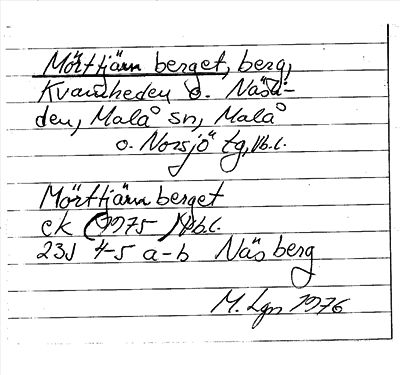 Mörttjärn berget, berg,
Kvarnheden o. Näsli-
den, Malå sn, Malå
o. Norsjö tg, Vb.l.
Mörttjärn berget
ek (1975) Vb.l.
23J 4-5 a-b Näs berg
M. Lgn 1976